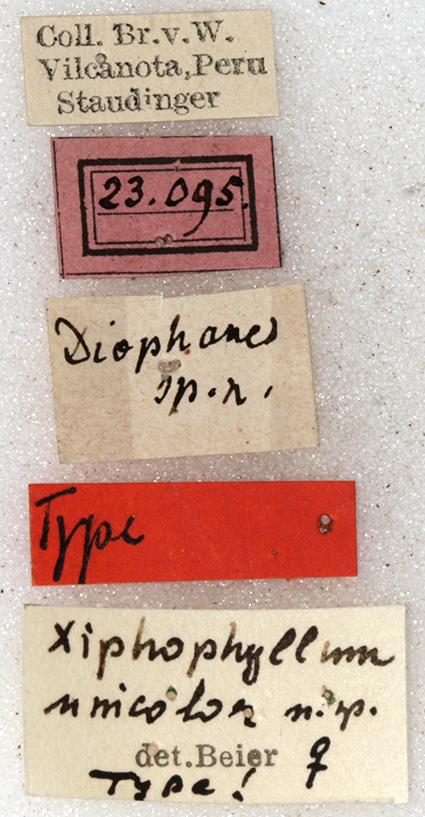 Coll. Br.v.W.
Vilcanota, Peru
Staudinger
23.095.
Diophanes
sp.n.
Type
Xiphophyllum
unicolor n.sp.
det.Beier ♀
Type!